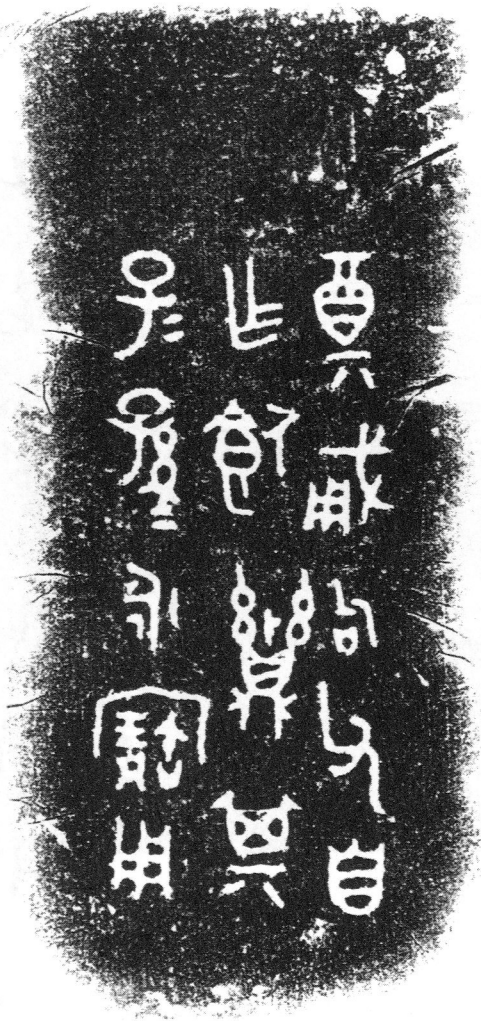 奠㦷句父自
乍飤鼒其
子=孫=永寶用